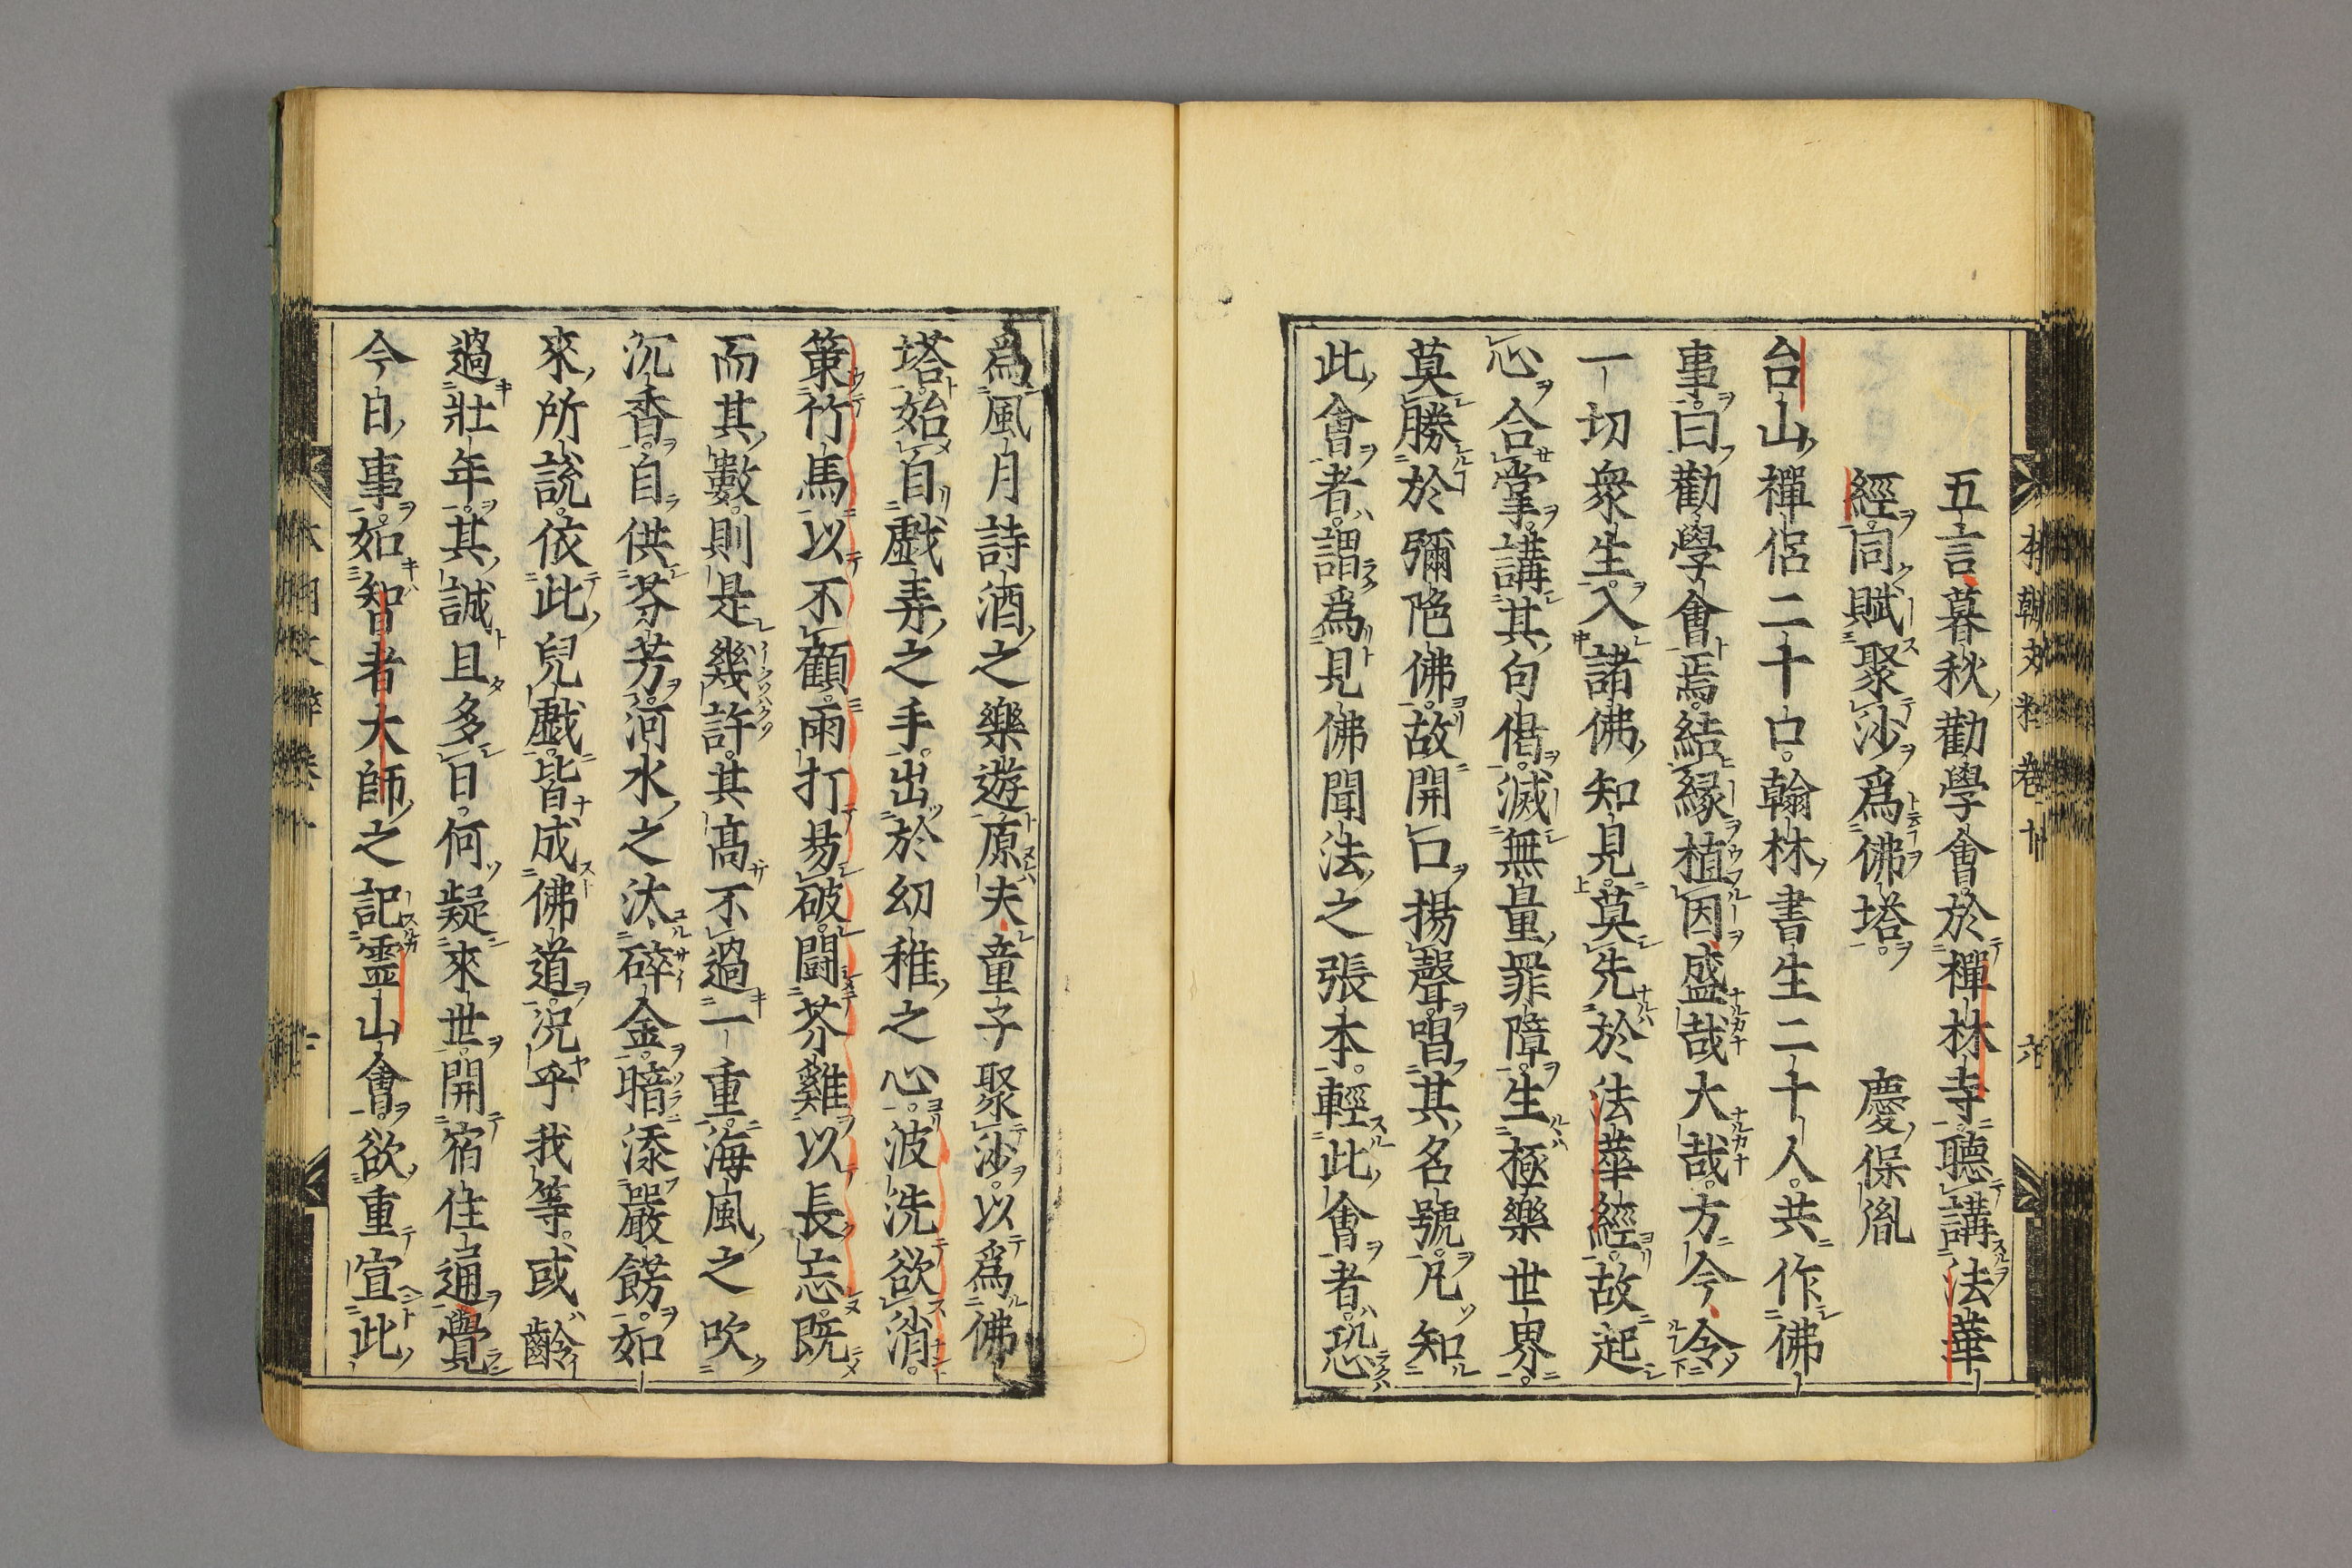 本朝文粹卷十 六
五言暮秋勸學會於禪林寺聽講法華
經同賦聚沙爲佛塔 慶保胤
台山禪侶二十口翰林書生二十人共作佛
事曰勸學會焉結緣植因盛哉大哉方今令
一切衆生入諸佛知見莫先於法華經故起
心合掌講其句偈滅無量罪障生極樂世界
莫勝於彌陁佛故開口揚聲唱其名號凡知
此會者謂爲見佛聞法之張本輕此會者恐
爲風月詩酒之樂遊原夫童子聚沙以爲佛
塔始自戲弄之手出於幼稚之心波洗欲消
策竹馬以不顧雨打易破鬪芥雞以長忘既
而其數則是幾許其高不過一重海風之吹
沉香自供芬芳河水之汰碎金暗添嚴餝如
來所說依此兒戲皆成佛道況乎我等或齡
過壯年其誠且多日何疑來世開宿住通覺
今日事如智者大師之記靈山會欲重宣此